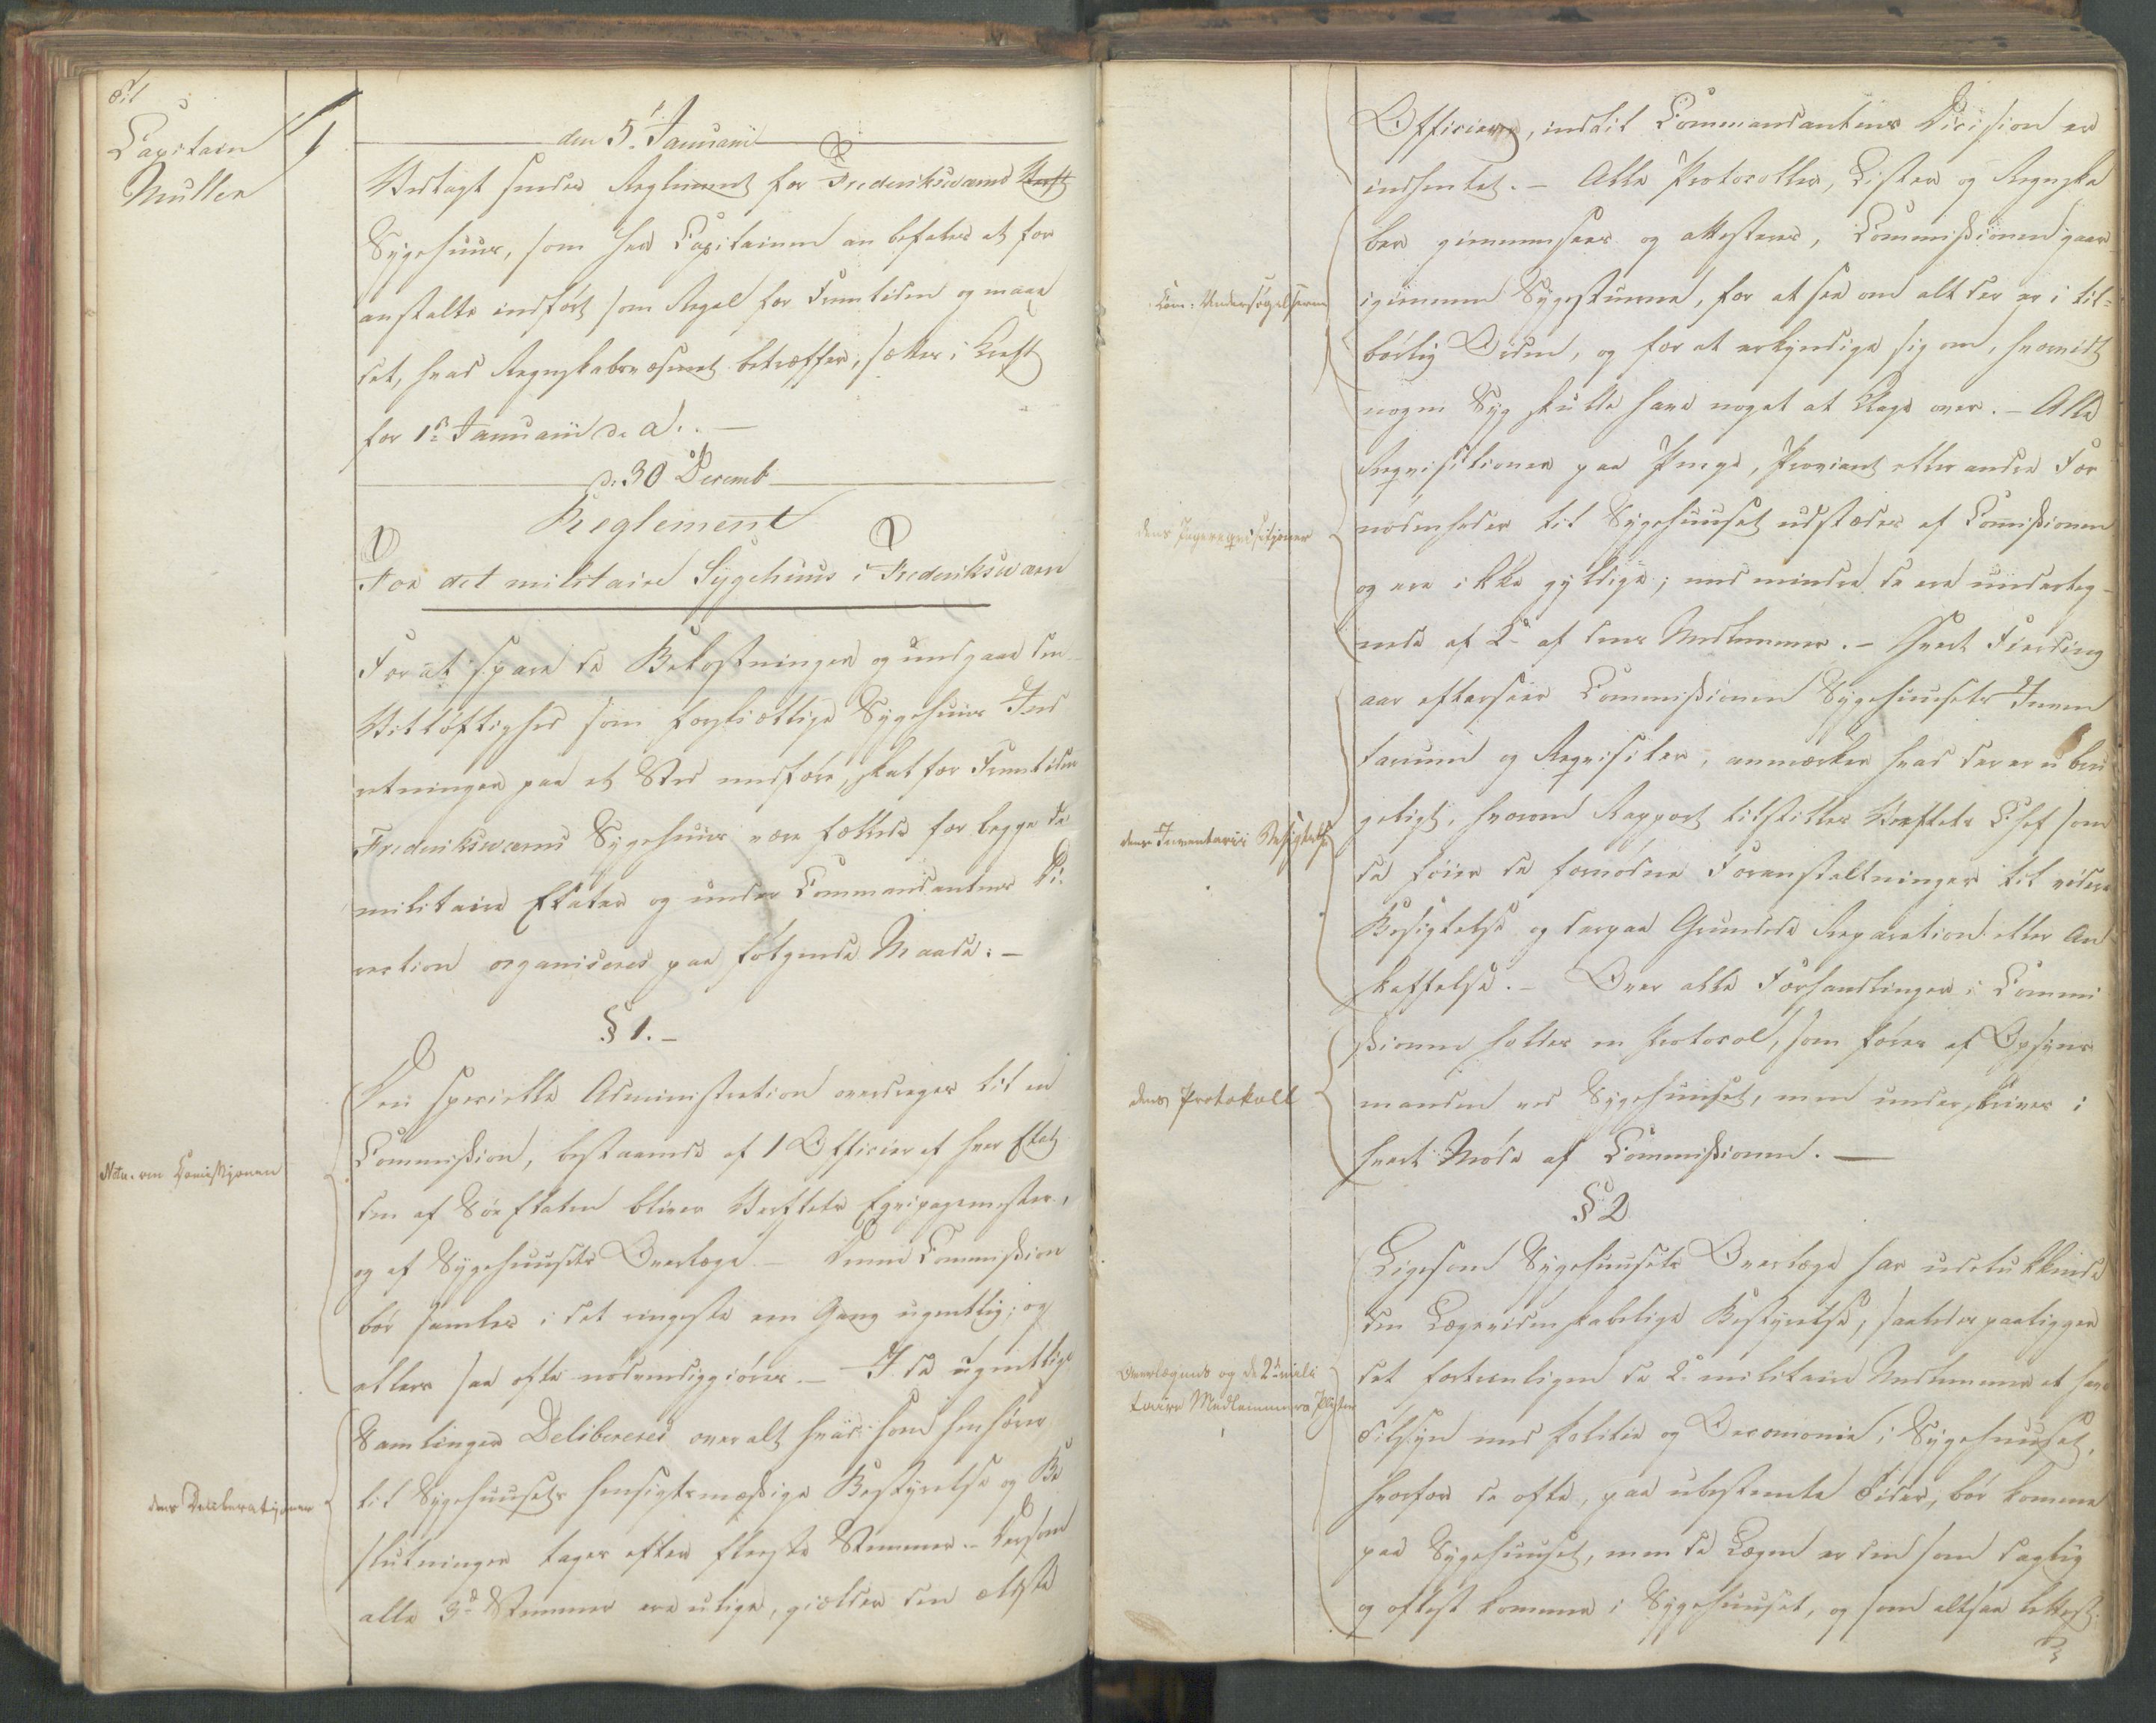 Til
Capitain
Müller
1
den 5t Januarii
Vedlagt sendes Reglement for Frederikswærns
Sygehuus, som Herr Capitainen an befales at for
anstalte indført som Regel for Fremtiden og maae
det, hvad Regnskabsvæsenet betræffer, sættes i Kraft
for 1ste Januarii d. A. —
d. 30 Decemb
Reglement
For det militaire Sygehuus i Frederikswærn
For at spare de Bekostninger og undgaae den
Vitløftighed som forskiællige Sygehuus Ind
retninger paa et Sted medføre, skal for Fremtiden
Frederikswærns Sygehuus være fælleds for begge de
militaire Etater og under Commandantens Di
rection organiseres paa følgende Maade: —
§ 1. —
Den specielle Administration overdrages til en
Commission, bestaaende af 1 Officier af hver Etat
den af Søe Etaten bliver Verftets Eqvipagemester,
og af Sygehuusets Overlæge — Denne Commission
bør samles i det ringeste een Gang ugentlig; og
ellers saa ofte nødvendiggiøres. — I de ugentlige
Samlinger Delibereres over alt hvad som henhører
til Sygehuusets hensigtsmæssige Bestyrelse og Be
slutninger tages efter fleeste Stemmer. — Dersom
alle 3de Stemmer ere ulige, giælder den ældste
Natu. om Comissjonen
dens Deliberatjoner
Officiers, indtil Commandantens Decision er
indhentet. — Alle Protocoller, Lister og Regnska
ber giennemsees og attesteres, Commissionen gaaer
igiennem Sygestuerne, for at see om alt der er i til-
børlig Orden, og for at erkyndige sig om, hvorvidt
nogen Syg skulle have noget at klage over. — Alle
Reqvisitioner paa Penge, Proviant eller andre For
nødenheder til Sygehuuset udstædes af Comissionen
og ere ikke gyldige; med mindre de ere underteg-
nede af 2de af dens Medlemmer. — Hvert Fierding
aar efterseer Commissionen Sygehuusets Inven
tarium og Reqvisiter, anmærker hvad der er ubru
geligt, hvorom Rapport tilstilles Verftets Chef som
da føier de fornødne Foranstaltninger til videre
Besigtelse og derpaa Grundede Reparation eller An
skaffelse. — Over alle Forhandlinger i Commi
ssionen holdes en Protocol, som føres af Opsyns
manden ved Sygehuuset, men underskrives i
hvert Møde af Commissionen. —
§ 2
Ligesom Sygehuusets Overlæge har udelukkende
den Lægevidenskabelige Bestyrelse, saaledes paaligger
det fortrinligen de 2de militaire Medlemmer at have
Tilsyn med Politie og Oeconomie i Sygehuuset,
hvorfor de ofte, paa ubestemte Tider, bør komme
paa Sygehuuset, men da Lægen er den som daglig
og oftest kommer i Sygehuuset, og som altsaa lettest
Com: Undersøgelserne
dens Inventarii Besigtelse
dens Protokoll
Overlægens og de 2de mili
taire Medlemmers Pligter